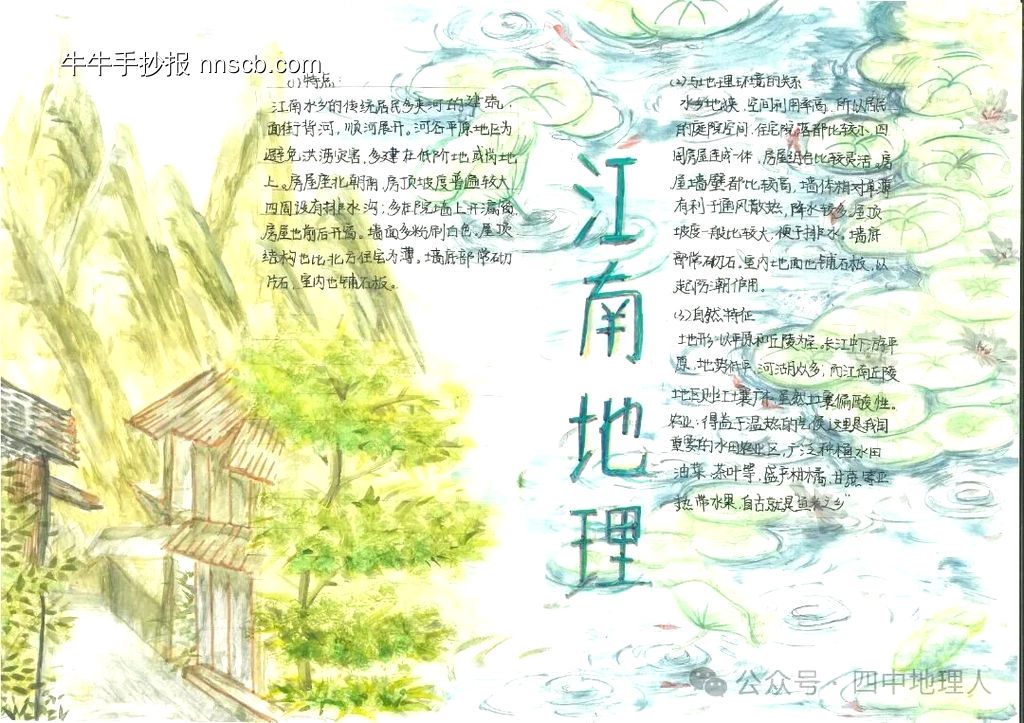 牛牛手抄报 nnscb.com
(1)特点:
江南水乡的传统居民多夹河的建筑,
面街背河,顺河展开。河谷平原地区为
避免洪涝灾害,多建在低阶地或岗地
上。房屋座北朝南,房顶坡度普遍较大
四周设有排水沟;多在院墙上开漏窗,
房屋也前后开窗。墙面多粉刷白色。屋顶
结构也比北方住宅为薄。墙底部常砌
片石,室内也铺石板。
江南地理
(2)与地理环境的关系
水乡地狭,空间利用率高,所以居民
的庭院空间,住宅院落都比较小,四
周房屋连成一体,房屋组合比较灵活。房
屋墙壁都比较高,墙体相对单薄
有利于通风散热,降水较多,屋顶
坡度一般比较大,便于排水。墙底
部常砌石。室内地面也铺石板,以
起防潮作用。
(3)自然特征
地形:以平原和丘陵为主。长江中下游平
原,地势低平,河湖众多;而江南丘陵
地区则红壤广布,虽然土壤偏酸性。
农业:得益于温热的气候,这里是我国
重要的水田农业区,广泛种植水田
油菜,茶叶等,盛产柑橘,甘蔗等亚
热带水果,自古就是"鱼米之乡"
公众号·四中地理人